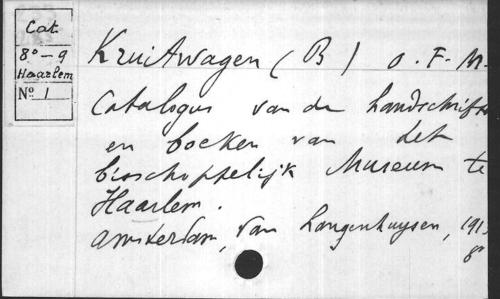 Cat
8° - 9
Haarlem
N° 1
Kruitwagen ( B ) O. F. M.
Catalogus van de handschriften
en boeken van het
bisschoppelijk Museum te
Haarlem.
Amsterdam, Van Langenhuysen,
8°